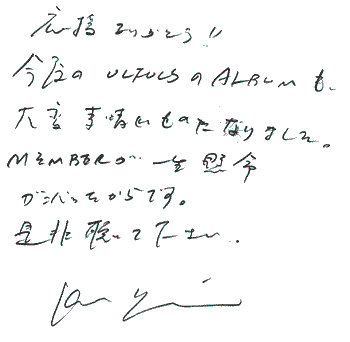 応援ありがとう!!
今度の ULFULS の ALBUM も、
大変 素晴しいものになりました。
MEMBERが 一生懸命
ガンバッたからです。
是非 聴いて下さい.